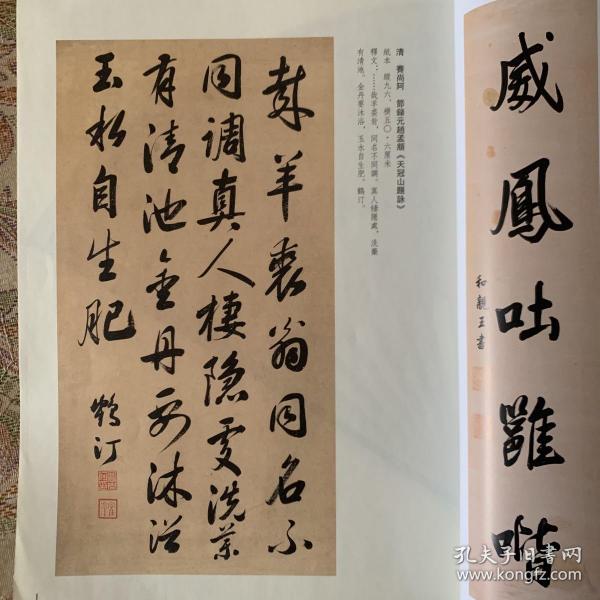 清 賽尚阿 節錄元趙孟頫《天冠山題詠》
紙本 縱九六、橫五〇·六厘米
釋文：……哉羊裘翁，同名不同調。真人棲隱處，洗藥
有清池。金丹要沐浴，玉水自生肥。鶴汀。
哉羊裘翁同名不
同調真人棲隱處洗藥
有清池金丹要沐浴
玉水自生肥 鶴汀
威鳳吐雝喈
和親王書
孔夫子旧书网
www.kongfz.com